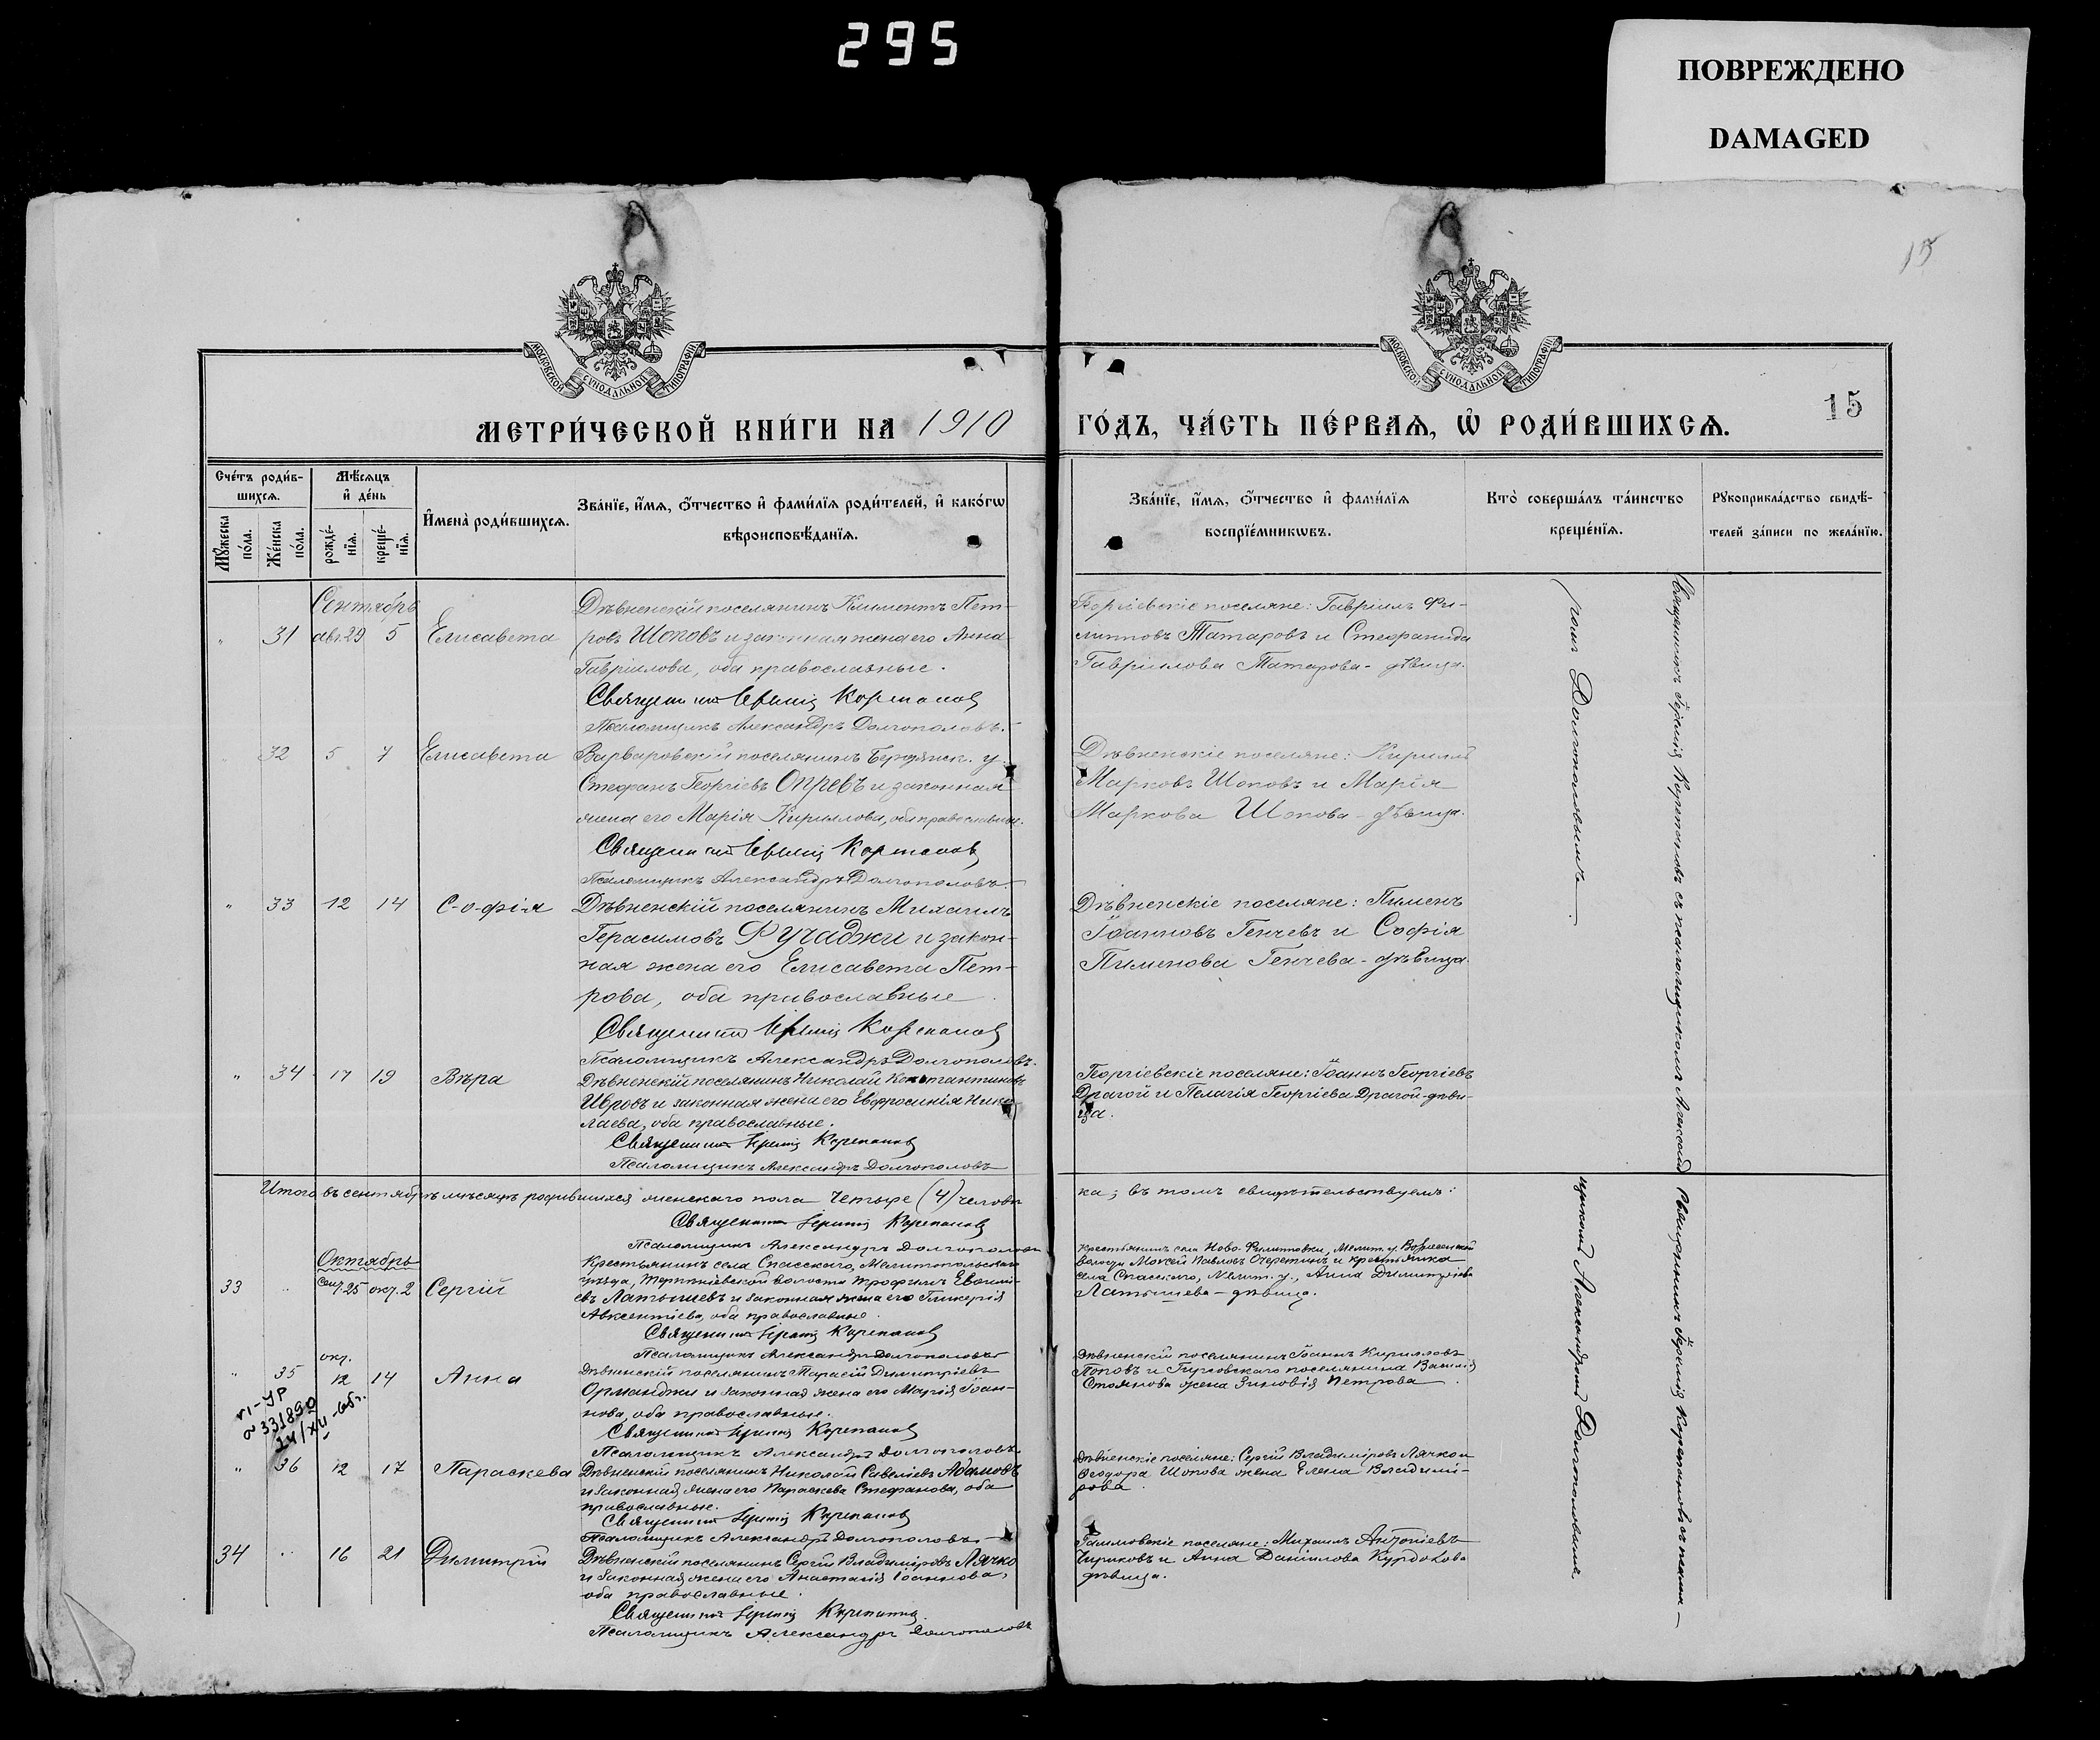 295
ПОВРЕЖДЕНО
DAMAGED
15
МОСКОВСКОЙ СѴНОДАЛЬНОЙ ТИПОГРАФІИ
МОСКОВСКОЙ СѴНОДАЛЬНОЙ ТИПОГРАФІИ
МЕТРИ́ЧЕСКОЙ КНИ́ГИ НА 1910
ГО́ДЪ, ЧА́СТЬ ПЕ́РВАѦ, Ѡ҆ РОДИ́ВШИХСѦ.
15
Сче́тъ роди́в-
шихсѧ.
Мꙋ́жеска по́ла.
Же́нска по́ла.
Мѣ́сѧцъ
и҆ де́нь
рожде́-
нїѧ.
креще́-
нїѧ.
И҆мена̀ роди́вшихсѧ.
Зва́нїе, и҆́мѧ, ѻ҆́тчество и҆ фами́лїѧ роди́телей, и҆ како́гѡ
вѣроисповѣ́данїѧ.
Зва́нїе, и҆́мѧ, ѻ҆́тчество и҆ фами́лїѧ
воспрїе́мникѡвъ.
Кто̀ соверша́лъ та́инство
креще́нїѧ.
Рꙋкоприкла́дство свидѣ́-
телей за́писи по жела́нїю.
Сентябрь
" 31 авг. 29 5 Елисавета
Дѣвненскій поселянинъ Климентъ Пет-
ровъ Шоповъ и законная жена его Анна
Гавріилова, оба православные.
Священникъ Іеремія Корепановъ
Псаломщикъ Александръ Долгополовъ.
Георгіевскіе поселяне: Гавріилъ Фи-
липповъ Татаровъ и Стефанида
Гавріилова Татарова - дѣвица.
32 5 7 Елисавета
Варваровскій поселянинъ Бердянск. у.
Стефанъ Георгіевъ Опревъ и законная
жена его Марія Кириллова, оба православные.
Священникъ Іеремія Корепановъ
Псаломщикъ Александръ Долгополовъ.
Дѣвненскіе поселяне: Кириллъ
Марковъ Шоповъ и Марія
Маркова Шопова - дѣвица.
" 33 12 14 С-о-фія
Дѣвненскій поселянинъ Михаилъ
Герасимовъ Фучаджи и закон-
ная жена его Елисавета Пет-
рова, оба православные.
Священникъ Іеремія Корепановъ
Псаломщикъ Александръ Долгополовъ.
Дѣвненскіе поселяне: Пименъ
Іоанновъ Генчевъ и Софія
Пименова Генчева - дѣвица.
" 34 17 19 Вѣра
Дѣвненскій поселянинъ Николай Константиновъ
Ивровъ и законная жена его Евфросинія Нико-
лаева, оба православные.
Священникъ Іеремія Корепановъ
Псаломщикъ Александръ Долгополовъ
Георгіевскіе поселяне: Іоаннъ Георгіевъ
Драгой и Пелагія Георгіева Драгой - дѣви-
ца.
Итого въ сентябрѣ мѣсяцѣ родившихся женскаго пола четыре (4) человѣ
ка; въ томъ свидѣтельствуемъ:
Священникъ Іеремія Корепановъ
Псаломщикъ Александръ Долгополовъ
Октябрь
33 " сент. 25 окт. 2 Сергій
Крестьянинъ села Спасскаго, Мелитопольскаго
уѣзда, Терпѣніевской волости Трофимъ Евѳимі-
евъ Латышевъ и законная жена его Гликерія
Авксентіева, оба православные.
Священникъ Іеремія Корепановъ
Псаломщикъ Александръ Долгополовъ
Крестьянинъ села Ново-Филипповки, Мелит. у. Вознесенской
волости Моисей Павловъ Очеретинъ и крестьянка
села Спасскаго, Мелит. у., Анна Димитріева
Латышева - дѣвица.
окт.
" 35 12 14 Анна
Дѣвненскій поселянинъ Тарасій Димитріевъ
Орманджи и законная жена его Марія Іоан-
нова, оба православные.
Священникъ Іеремія Корепановъ
Псаломщикъ Александръ Долгополовъ.
Дѣвненскій поселянинъ Іоаннъ Кирилловъ
Поповъ и Гирсовскаго поселянина Василія
Стоянова жена Зиновія Петрова.
VI-УР
№ 331890
24/XII-46г.
" 36 12 17 Параскева
Дѣвненскій поселянинъ Николай Савеліевъ Абамовъ
и законная жена его Параскева Стефанова, оба
православные.
Священникъ Іеремія Корепановъ
Псаломщикъ Александръ Долгополовъ
Дѣвненскіе поселяне: Сергій Владиміровъ Лячко и
Ѳеодора Шопова жена Елена Владимі-
рова.
34 " 16 21 Димитрій
Дѣвненскій поселянинъ Сергій Владиміровъ Лячко
и законная жена его Анастасія Іоаннова,
оба православные.
Священникъ Іеремія Корепановъ
Псаломщикъ Александръ Долгополовъ
поселяне: Михаилъ Антоніевъ
Чириковъ и Анна Даніилова Курдокова
дѣвица.
Священникъ Іеремія Корепановъ съ псаломщикомъ Александ
ромъ Долгополовымъ.
Священникъ Іеремія Корепановъ съ псало-
мщикомъ Александромъ Долгополовымъ.